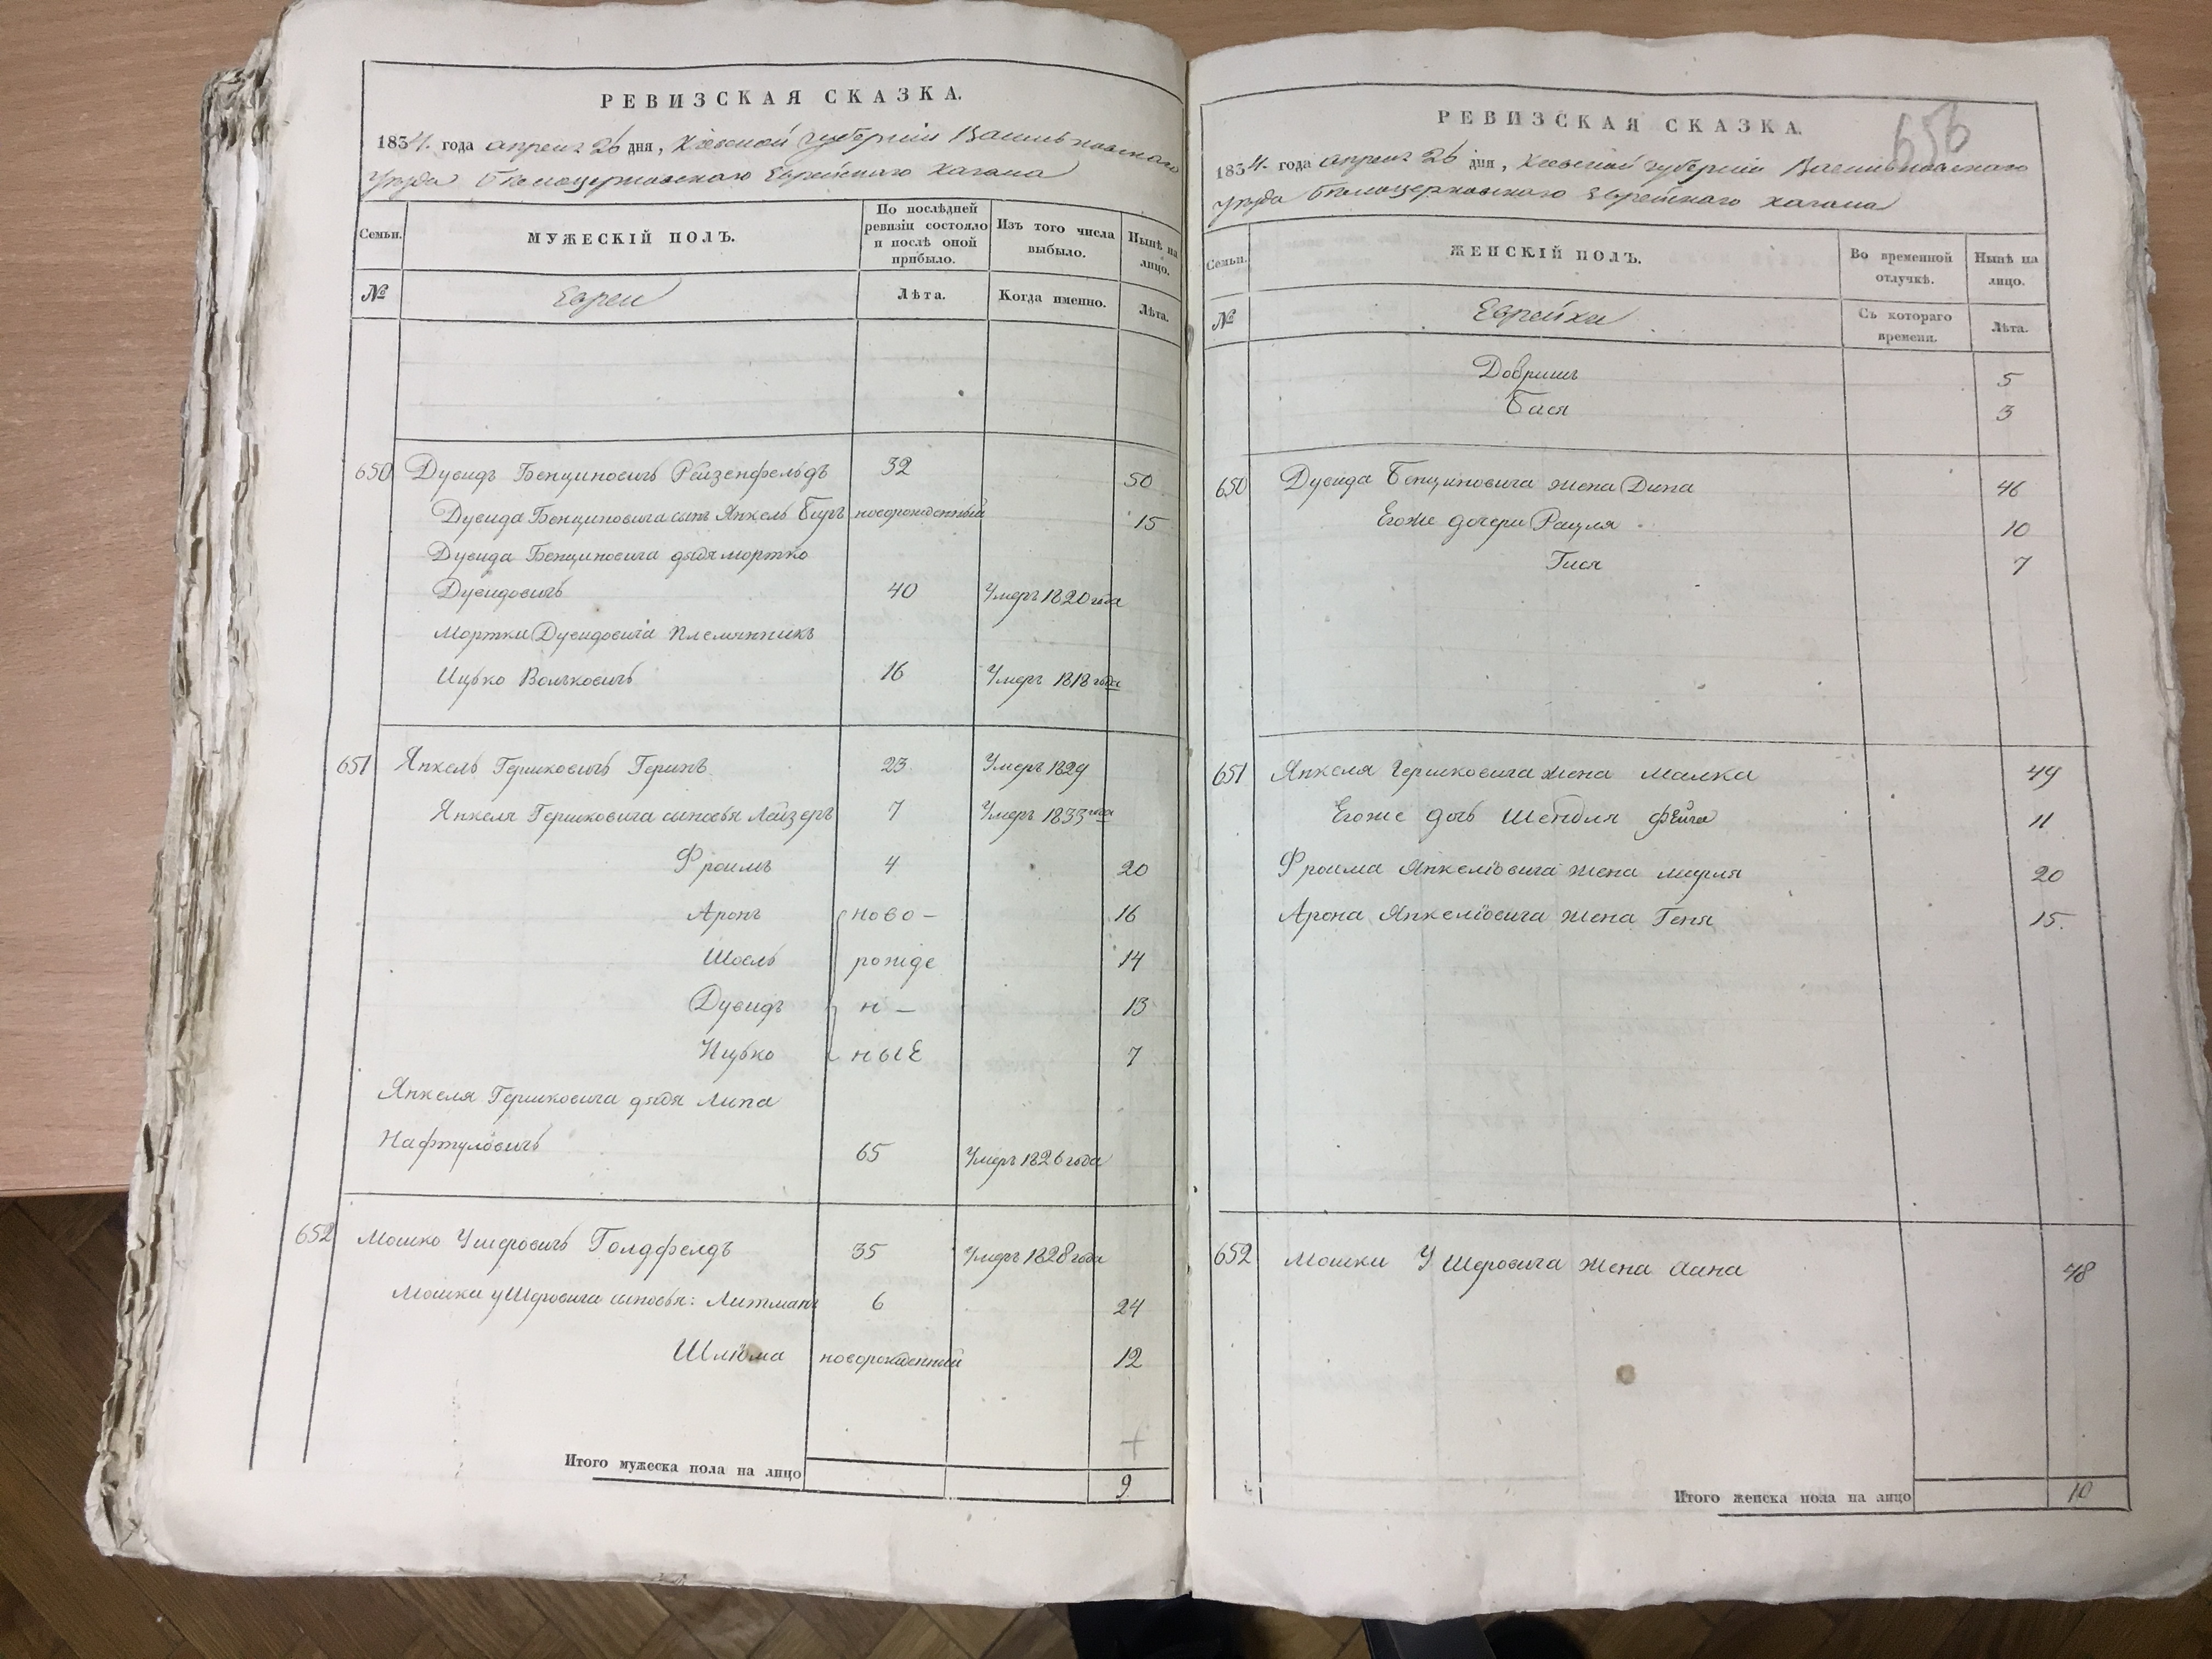 РЕВИЗСКАЯ СКАЗКА.
1834. года апреля 26 дня, Кіевской губерніи Васильковскаго
уѣзда Бѣлоцерковскаго Еврейскаго Кагала
Семьи.
МУЖЕСКІЙ ПОЛЪ.
По послѣдней ревизіи состояло и послѣ оной прибыло.
Изъ того числа выбыло.
Нынѣ на лицо.
№
Евреи
Лѣта.
Когда именно.
Лѣта.
650 Дувидъ Бенціновичъ Рейзенфельдъ 32 50
Дувида Бенціновича сынъ Янкель Беръ новорожденный 15
Дувида Бенциновича дядя Мортко
Дувидовичъ 40 Умеръ 1820 года
Мортки Дувидовича племянникъ
Ицько Волковичъ 16 Умеръ 1818 года
651 Янкель Гершковичъ Геринъ 23 Умеръ 1829
Янкеля Гершковича сыновья Лейзеръ 7 Умеръ 1833 года
Фроимъ 4 20
Аронъ ново- 16
Шоель рожде 14
Дувидъ н- 13
Ицько ные 7
Янкеля Гершковича дядя Липа
Нафтуловичъ 65 Умеръ 1826 года
652 Мошко Ушеровичъ Голдфелдъ 35 Умеръ 1828 года
Мошки Ушеровича сыновья: Литманъ 6 24
Шліома новорожденный 12
Итого мужеска пола на лицо 9
656
РЕВИЗСКАЯ СКАЗКА.
1834. года апреля 26 дня, Кіевской губерніи Васильковскаго
уѣзда Бѣлоцерковскаго Еврейскаго кагала
Семьи.
ЖЕНСКІЙ ПОЛЪ.
Во временной отлучкѣ.
Нынѣ на лицо.
№
Еврейки
Съ котораго времени.
Лѣта.
Добришъ 5
Бася 3
650 Дувида Бенциновича жена Дина 46
Егоже дочери Рацля 10
Гися 7
651 Янкеля Гершковича жена Малка 49
Егоже дочь Шендля Фейга 11
Фроима Янкеліовича жена Мирля 20
Арона Янкеліовича жена Геня 15.
652 Мошки Ушеровича жена 48
Итого женска пола на лицо 10